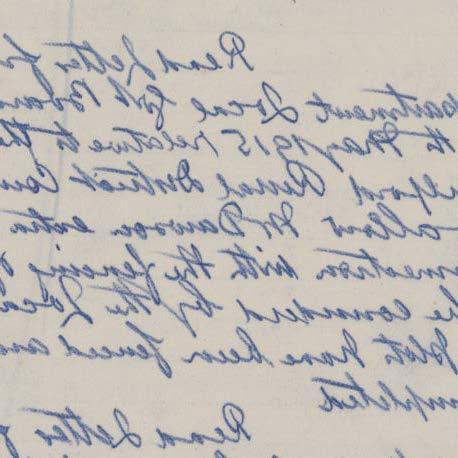 Read Letter fr
partment Local Govt Boar
th May 1915 relative to the
ilford Rural District Cou
allow Mr Dawson extra
nnection with the fencing o
be considered by the Loca
Plots have been fenced and
mpleted
Read Letter f